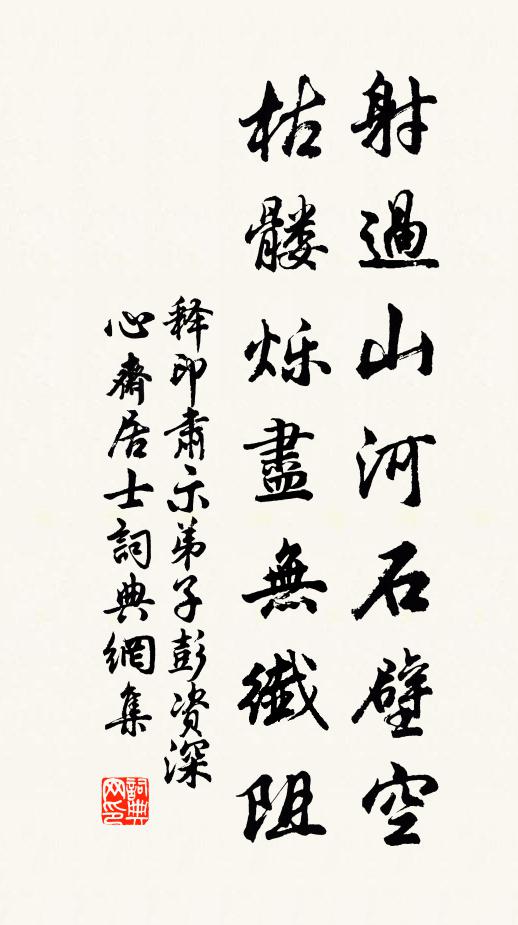 射過山河石壁空
枯髏烁盡無纖阻
释印肅示弟子彭资深
心齋居士詞典網集
詞典网印